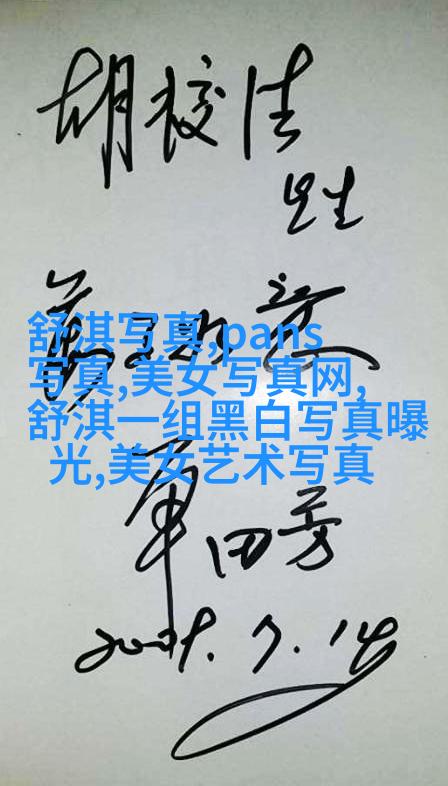 胡校
先生
舒淇写真,pans
写真,美女写真网,
舒淇一组黑白写真曝
光,美女艺术写真
单田芳